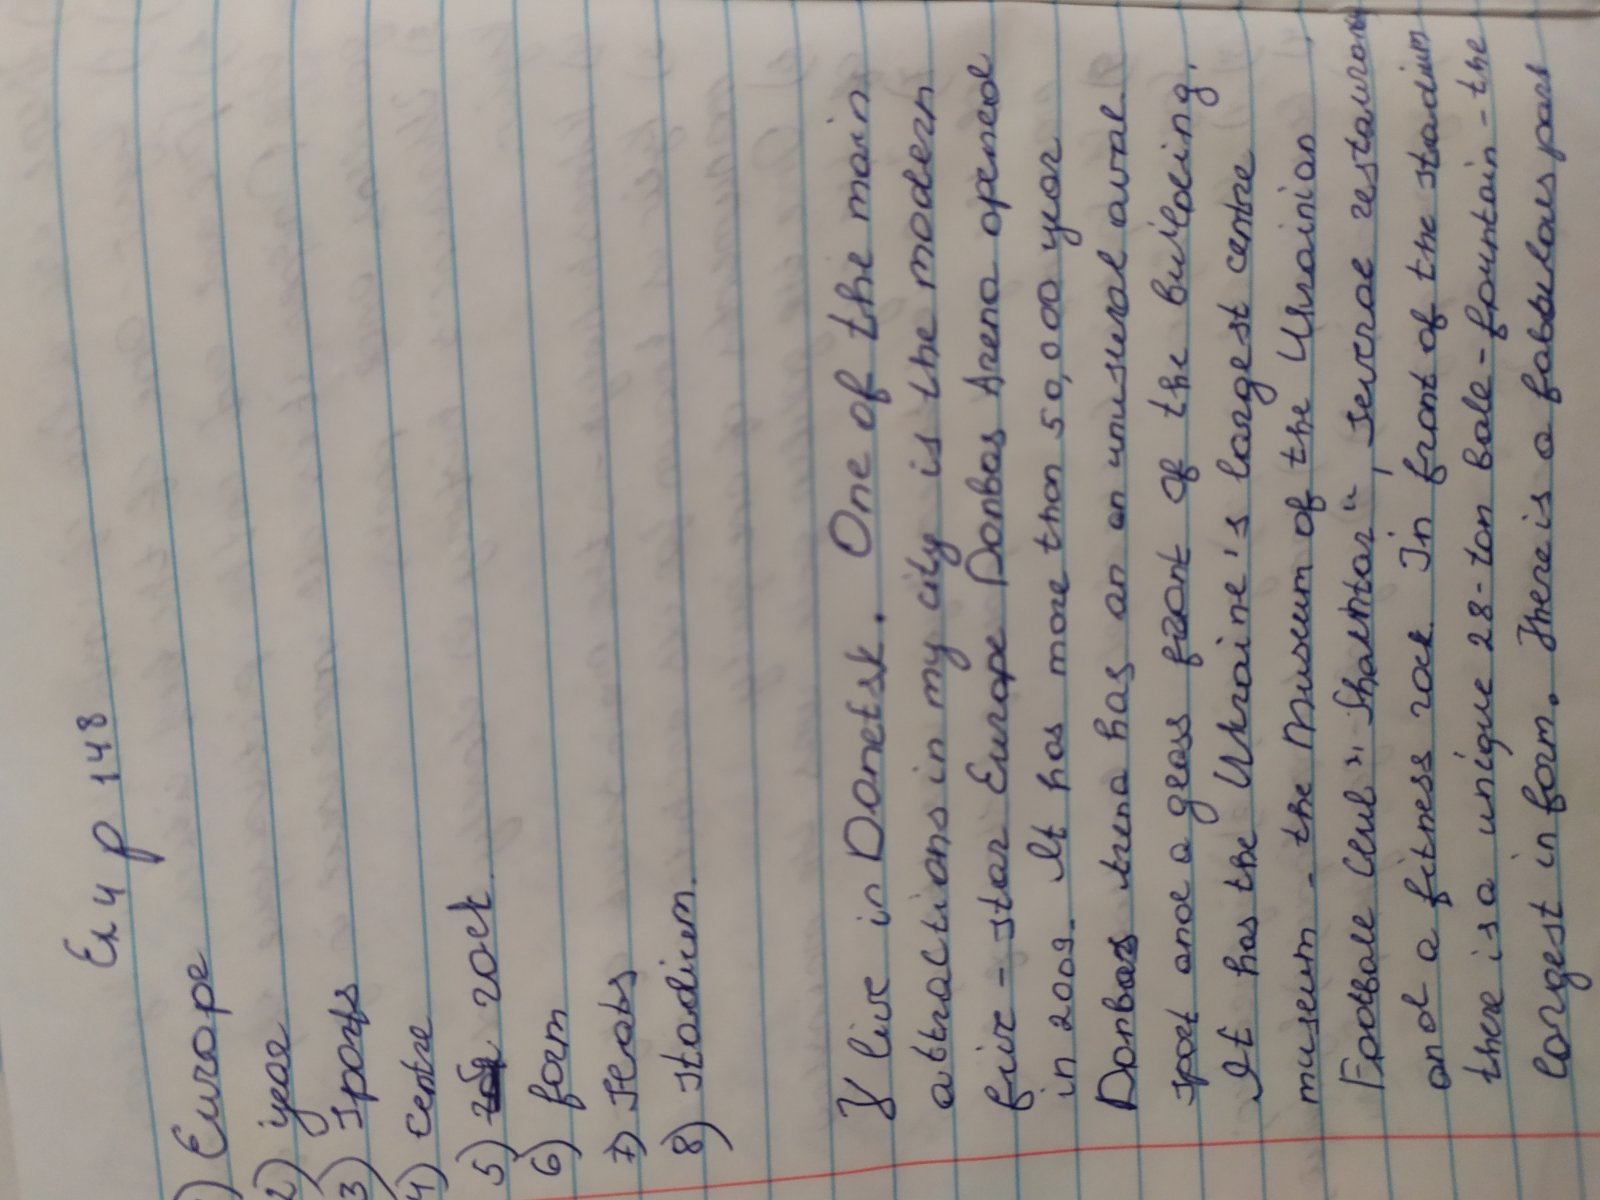 Ex 4 p 148
1) Europe
2) year
3) sports
4) centre
5) roof
6) form
7) seats
8) stadium
I live in Donetsk. One of the main
attractions in my city is the modern
five-star Europe Donbas Arena opened
in 2009. It has more than 50,000 year
Donbas Arena has an unusual oval
sport and a glass front of the building.
It has the Ukraine's largest centre
museum - the Museum of the Ukrainian
Football Club "Shakhtar", several restaurants
and a fitness roof. In front of the stadium
there is a unique 28-ton ball-fountain - the
largest in form. There is a fabulous park